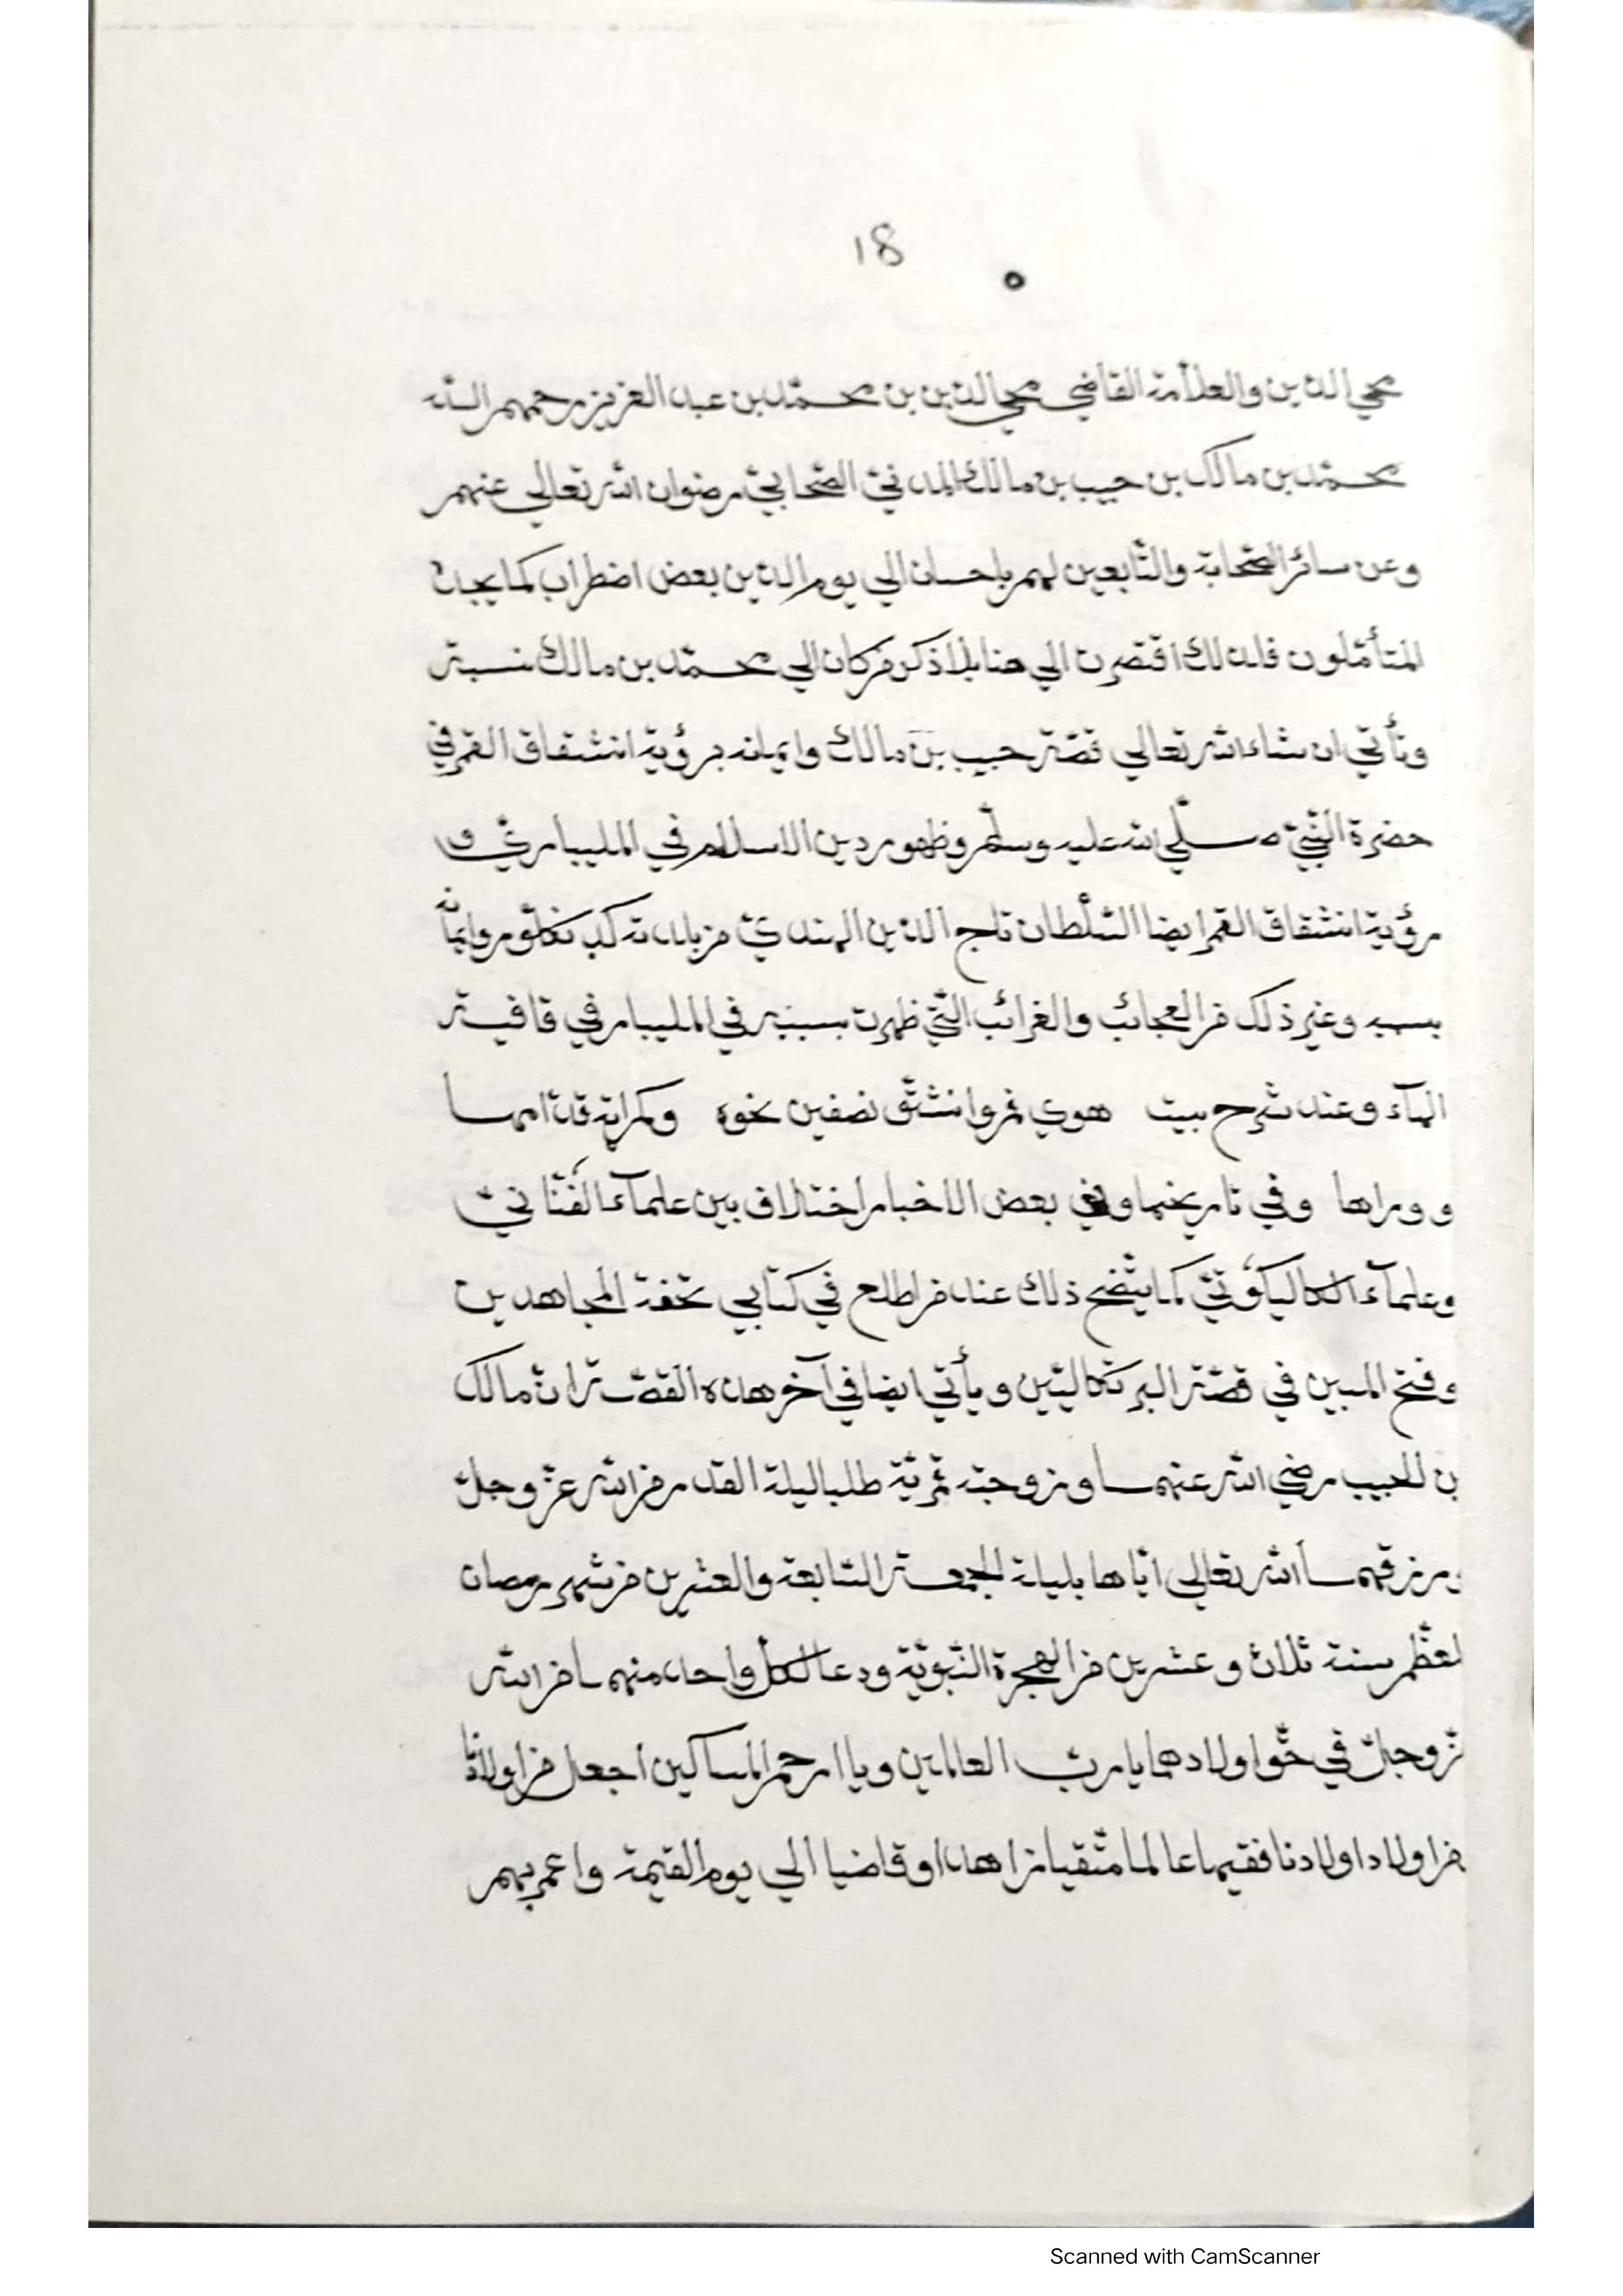 18
محي الدين والعلامة القاضي محي الدين بن محمّد بن عبد العزيز رحمهم اللّه
محمّد بن مالك بن حبيب بن مالك المدنيّ الصّحابيّ رضوان اللّه تعالي عنهم
وعن سائر الصّحابة والتّابعين لهم باحسان الي يوم الدّين بعض اضطراب كما يجده
المتأمّلون فلذلك اقتصرت الي هنا بلا ذكر من كان الي محمّد بن مالك نسبته
وتأتي ان شاء اللّه تعالي قصّة حبيب بن مالك وايمانه برؤية انشقاق القمر في
حضرة النّبيّ صلّي اللّه عليه وسلّم وظهور دين الاسلام في المليباريّ و
رؤية انشقاق القمر ايضا السّلطان تاج الدّين الهنديّ من بلدة كدنكلّور وايمانه
بسببه وغير ذلك من العجائب والغرائب الّتي ظهرت بسببه في المليبار في قافية
الهآء وعند شرح بيت هوي ثم وانشقّ نصفين نحوه وكم راية قدّامها
ووراها وفي تاريخهما وفي بعض الاخبار اختلاف بين علمآء الفُنّانيّ
وعلمآء الكاليكُوتيّ كما يتّضح ذلك عند من اطلع في كتابي تحفة المجاهدين
وفتح المبين في قصّة البرتكاليّين ويأتي ايضا في آخر هذه القصّة انّ مالك
بن الحبيب رضي اللّه عنهما وزوجته قمريّة طلبا ليلة القدر من اللّه عزّ وجلّ
ورزقهما اللّه تعالي ايّاها بليلة الجمعة السّابعة والعشرين من شهر رمضان
لمعظّم سنة ثلاث وعشرين من الهجرة النّبويّة ودعا لكلّ واحد منهما من اللّه
عزّ وجلّ في حقّ اولادهما يا ربّ العالمين ويا ارحم المساكين اجعل من اولادنا
من اولاد اولادنا فقيها عالما متّقيا زاهدا وقاضيا الي يوم القيمة واعمر بهم
Scanned with CamScanner